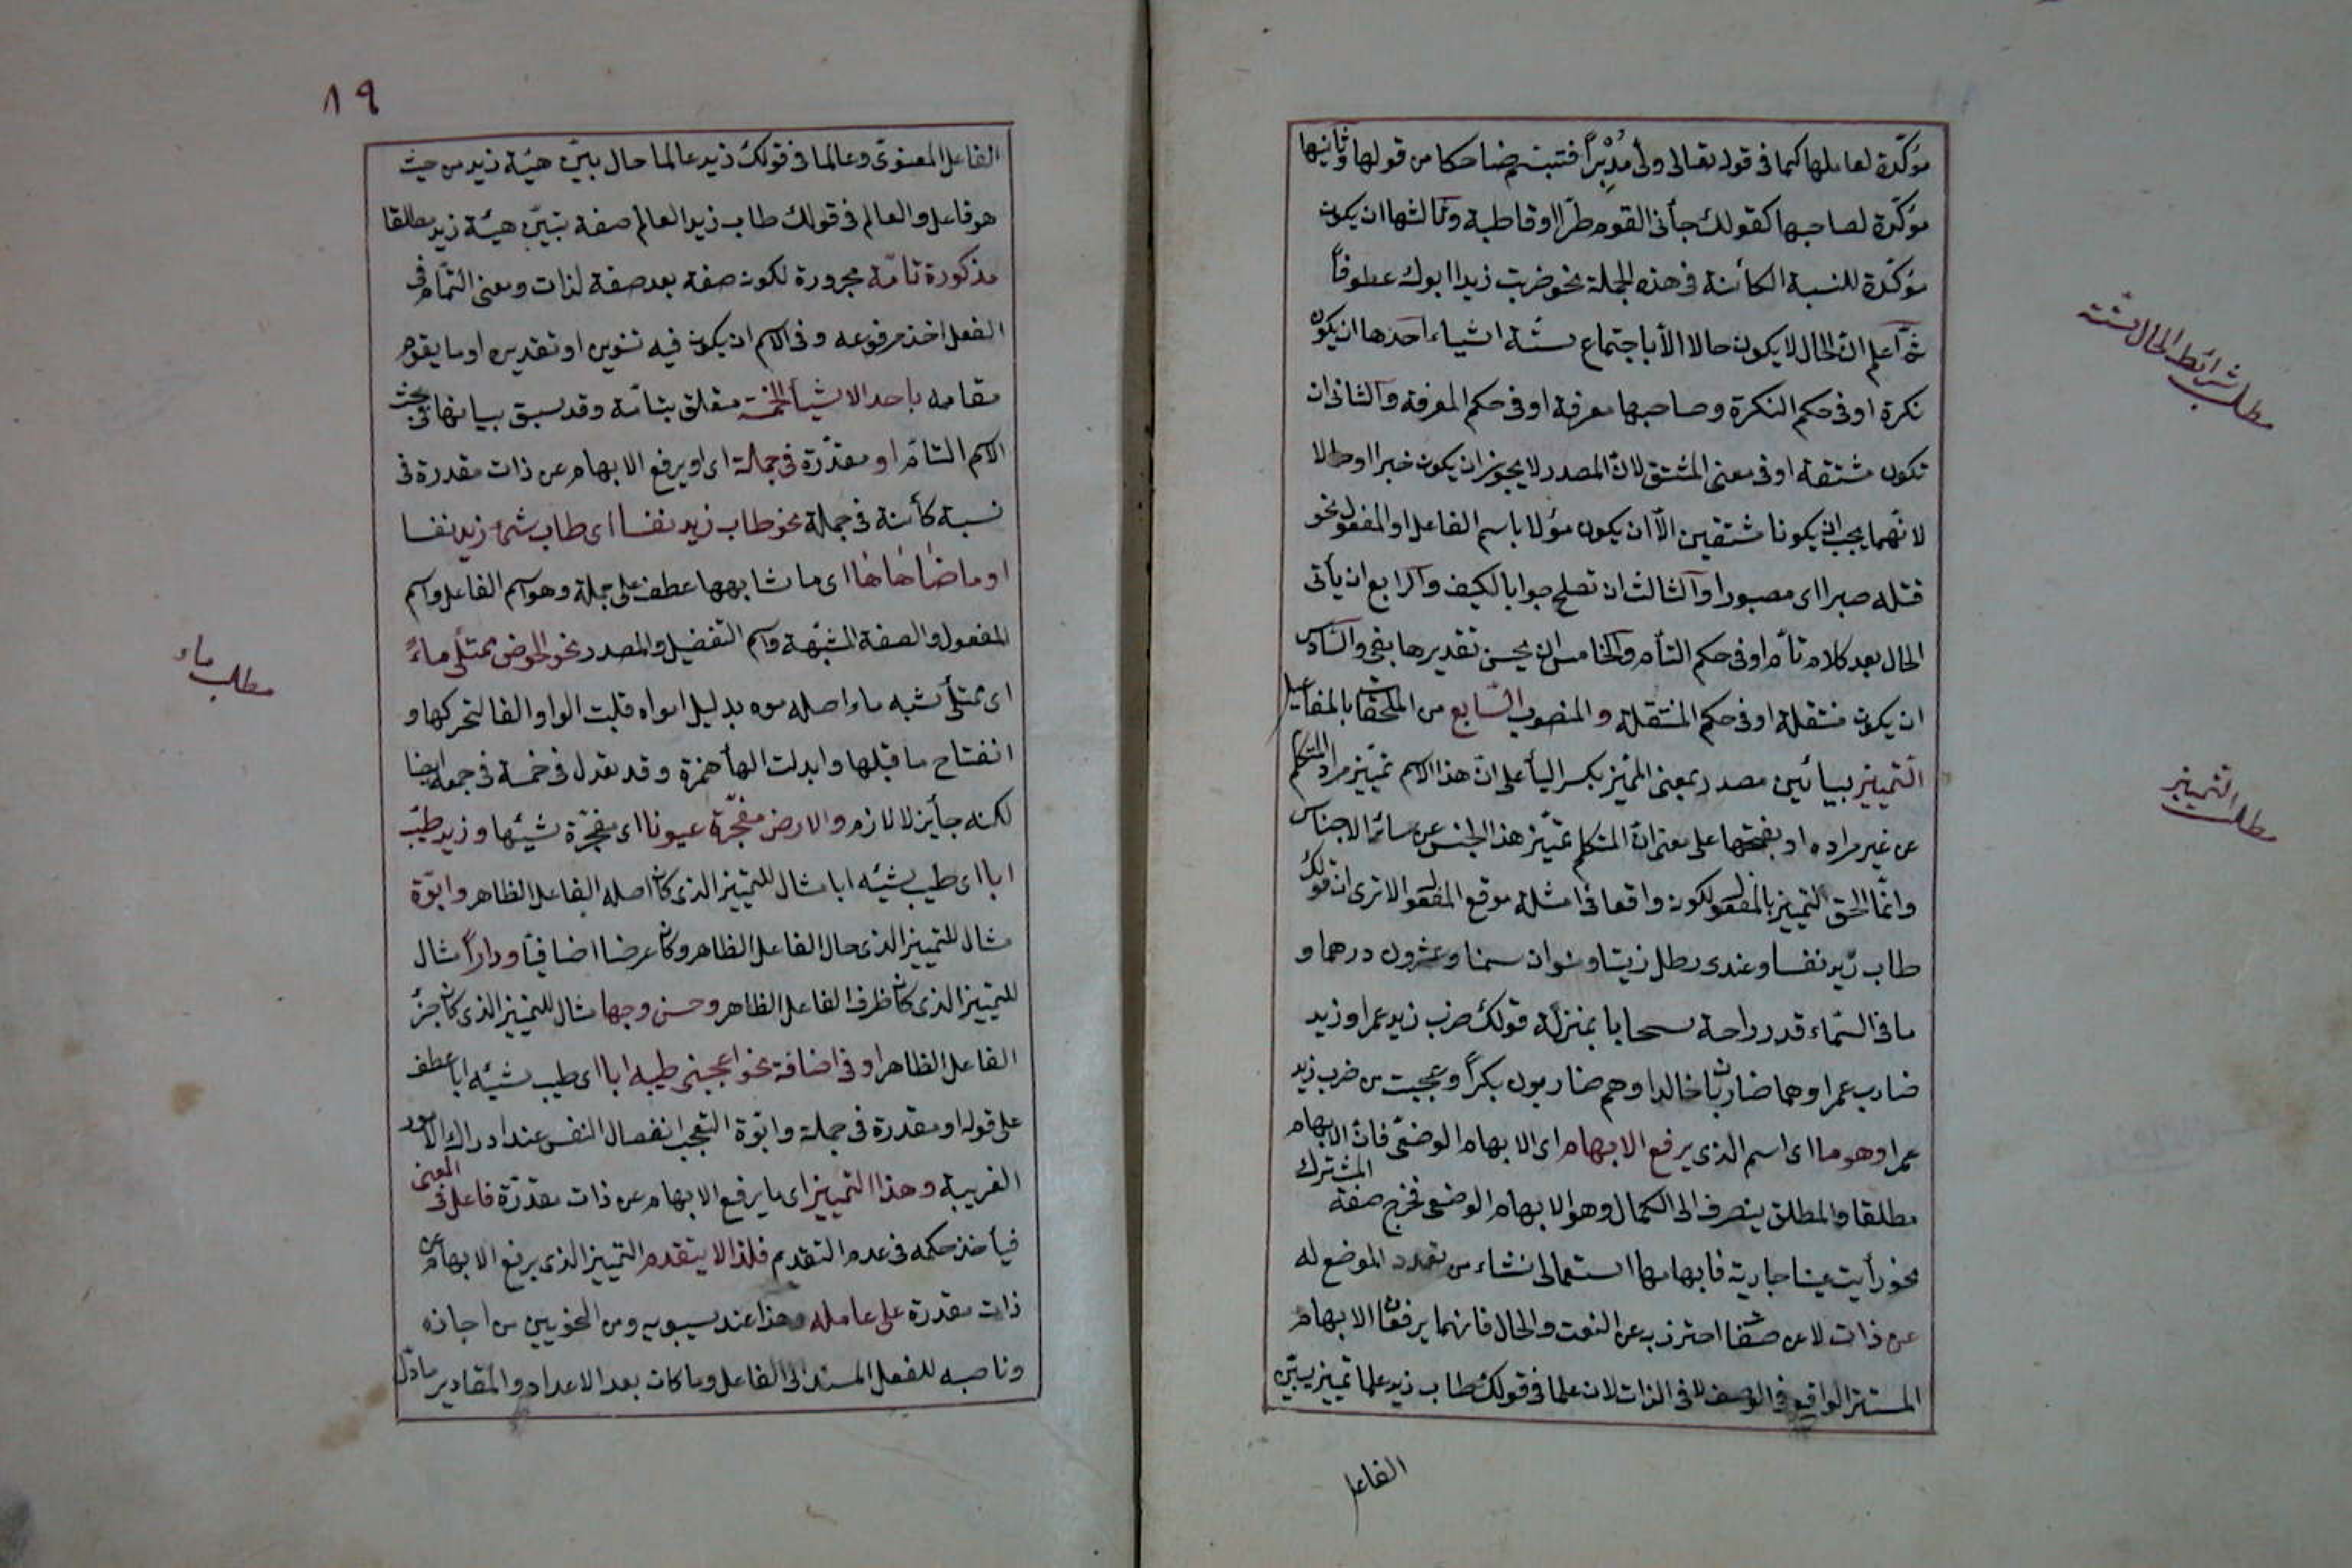 مؤكّدة لعاملها كما فى قوله تعالى ولّى مُدْبِراً فتبسّم ضاحكا من قولها وثانيها
مؤكّدة لصاحبها كقولك جأنى القوم طرّا او قاطبة وثالثها ان يكون
مؤكّدة للنسبة الكائنة فى هذه الجملة نحو ضربت زيدا ابوك عطوفاً
ثمّ اعلم انّ الحال لا يكون حالا الّا باجتماع ستّة اشياء احدها ان يكون
نكرة او فى حكم النكرة وصاحبها معرفة او فى حكم المعرفة والثانى ان
تكون مشتقة او فى معنى المشتق لانّ المصدر لا يجوز ان يكون خبرا او حالا
لانّهما يجب ان يكونا مشتقين الّا ان يكون مؤلا باسم الفاعل او المفعول نحو
قتله صبرا اى مصبورا والثالث ان تصلح جوابا لكيف والرابع ان يأتى
الحال بعد كلام تأم او فى حكم التأم والخامس ان يحسن تقديرها بفى والسادس
ان يكون منتقلة او فى حكم المنتقلة والمنصوب السّابع من الملحقات بالمفاعيل
التّمييز بيائين مصدر بمعنى المميّز بكسر اليأ على انّ هذا الاسم تمييز مراد المتكلم
عن غير مراده او بفتحها على معنى انّ المتكلم تميّز هذا الجنس عن سائر الاجناس
وانّما الحق التمييز بالمفعول لكونه واقعا فى امثلة موقع المفعول الا ترى ان قولك
طاب زيد نفسا وعندى رطل زيتا ومنوان سمنا وعشرون درهما و
ما فى السّماء قدر راحة سحابا بمنزلة قولك ضرب زيد عمرا وزيد
ضارب عمرا وهما ضاربان خالدا وهم ضاربون بكراً وعجبت من ضرب زيد
عمرا وهو ما اى اسم الذى يرفع الابهام اى الابهام الوضعىّ فانّ الابهام
المشترك
مطلقا والمطلق ينصرف الى الكمال وهو الابهام الوضعى فخرج صفة
نحو رأيت عينا جارية فابهامها استعمالى نشاء من تعدد الموضع له
عن ذات لا عن صفة احترز به عن النعت والحال فانهما يرفعان الابهام
المستتر الواقع فى الوصف لا فى الذات لان علما فى قولك طاب زيد علما تمييز يبيّن
الفاعل
مطلب شرائط الحال ستّة
مطلب التّمييز
٨٩
الفاعل المعنوى وعالما فى قولك زيد عالما حال يبيّن هيئة زيد من حيث
هو فاعل والعالم فى قولك طاب زيد العالم صفة تبيّن هيئة زيد مطلقا
مذكورة تامّة مجرورة لكونه صفة بعد صفة لذات ومعنى التّمام فى
الفعل اخذ مرفوعه وفى الاسم ان يكون فيه تنوين او تقديره او ما يقوم
مقامه باحد الاشيأ الخمسة متعلق بتامّة وقد سبق بيانها فى بحث
الاسم التأمّ او مقدّرة فى جملة اى او يرفع الابهام عن ذات مقدرة فى
نسبة كأئنة فى جملة نحو طاب زيد نفسا اى طاب شئ زيد نفسا
او ما ضاهاها اى ما شابهها عطف على جملة وهو اسم الفاعل واسم
المفعول والصفة المشبّهة واسم التفضيل والمصدر نحو الحوض ممتلئ ماءً
اى ممتلئ شبه ماء اصله موه بدليل امواه قلبت الواو الفا لتحركها و
انفتاح ما قبلها وابدلت الهأ همزة وقد تعدل فى خمسة فى جمعه ايضا
لكنه جأيز لا لازم والارض مفجّرة عيونا اى مفجّرة شيئها وزيد طيّب
ابا اى طيب شيئه ابا مثال للتمييز الذى كان اصله الفاعل الظاهر وابوّة
مثال للتمييز الذى حال الفاعل الظاهر وكان عرضا اضافيّا وداراً مثال
للتمييز الذى كان ظرف الفاعل الظاهر وحسن وجها مثال للتمييز الذى كان جزء
الفاعل الظاهر او فى اضافة نحو اعجبنى طيبه ابا اى طيب شيئه ابا عطف
على قوله او مقدرة فى جملة وابوّة التعجب انفصال النفس عند ادراك الامور
الغريبة وهذا التمييز اى ما يرفع الابهام عن ذات مقدّرة فاعل فى المعنى
فيأخذ حكمه فى عدم التقدم فلذا لا يتقدم التمييز الذى يرفع الابهام عن
ذات مقدرة على عامله وهذا عند سيبويه ومن النحويين من اجازه
وناصبه للفعل المسند الى الفاعل وما كان بعد الاعداد والمقادير مادلّ
مطلب ماء